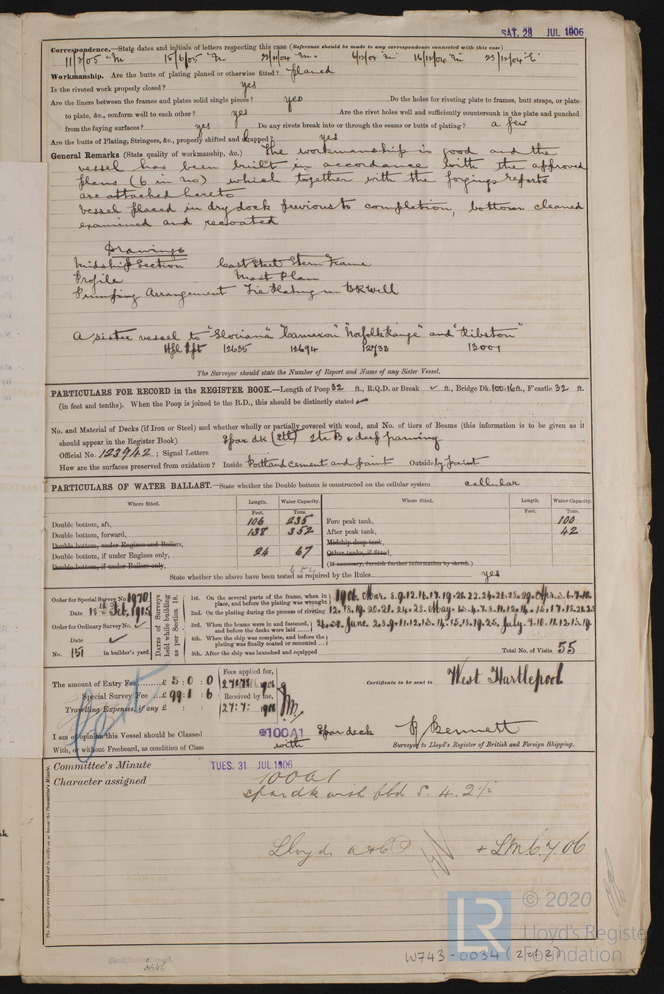 SAT. 28 JUL 1906
Correspondence.—State dates and initials of letters respecting this case (Reference should be made to any correspondence connected with this case)
11/3/05 "M" 15/6/05 "M" 22/11/04 "M" 6/12/04 "M" 16/12/04 "M" 23/12/04
Workmanship. Are the butts of plating planed or otherwise fitted? planed
Is the riveted work properly closed? yes
Are the liners between the frames and plates solid single pieces? yes Do the holes for riveting plate to frames, butt straps, or plate
to plate, &c., conform well to each other? yes Are the rivet holes well and sufficiently countersunk in the plate and punched
from the faying surfaces? yes Do any rivets break into or through the seams or butts of plating? a few
Are the butts of Plating, Stringers, &c., properly shifted and strapped? yes
General Remarks (State quality of workmanship, &c.) The workmanship is good and the
vessel has been built in accordance with the approved
plans (6 in no) which together with the forgings reports
are attached hereto
Vessel placed in dry dock previous to completion, bottom cleaned
examined and recoated
Drawings
Midship Section Cast Steel Stern Frame
Profile Mast Plan
Pumping Arrangement Tie Plating in BK Well
A sister vessel to "Sloviana" "Cameron" "Norfolk Range" and "Ribston"
Hpl Rpt 12635 12694 12738 13001
The Surveyor should state the Number of Report and Name of any Sister Vessel.
PARTICULARS FOR RECORD in the REGISTER BOOK.—Length of Poop 32 ft., R.Q.D. or Break ft., Bridge Dk. 100.16 ft., F'castle 32 ft.
(in feet and tenths). When the Poop is joined to the B.D., this should be distinctly stated
No. and Material of Decks (if Iron or Steel) and whether wholly or partially covered with wood, and No. of tiers of Beams (this information is to be given as it
should appear in the Register Book) Spar dk (Stl) 2tr B & deep framing
Official No. 123942 ; Signal Letters
How are the surfaces preserved from oxidation? Inside Portland cement and paint Outside by paint
PARTICULARS OF WATER BALLAST.—State whether the Double bottom is constructed on the cellular system cellular
Where fitted. Length. Water Capacity. Where fitted. Length. Water Capacity.
Feet. Tons. Feet. Tons.
Double bottom, aft, 106 235 Fore peak tank, 100
Double bottom, forward, 138 352 After peak tank, 42
Double bottom, under Engines and Boilers, Midship deep tank,
Double bottom, if under Engines only, 24 67 Other tanks, if fitted,
Double bottom, if under Boilers only, (If necessary, furnish further information by sketch.)
654
State whether the above have been tested as required by the Rules yes
Order for Special Survey No. 1970
Date 15th Feb, 1905
Order for Ordinary Survey No.
Date
No. 151 in builder's yard.
Dates of Surveys held while building as per Section 18.
1st. On the several parts of the frame, when in place, and before the plating was wrought 1906. Mar. 8.9.12.16.17.19.21.22.24.26.28.29. Apr. 3.6.7.10.
2nd. On the plating during the process of riveting 12.18.19.20.21.24.28. May.
3rd. When the beams were in and fastened, and before the decks were laid June. July.
4th. When the ship was complete, and before the plating was finally coated or cemented
5th. After the ship was launched and equipped Total No. of Visits 55
The amount of Entry Fee £ 5 : 0 : 0
Special Survey Fee £ 99 : 1 : 6
Travelling Expenses, if any £ : :
Fees applied for,
27/7/1906
Received by me,
27:7:1906
Certificate to be sent to West Hartlepool
Cert
I am of opinion this Vessel should be Classed ✠100A1 Spar deck
With, or without Freeboard, as condition of Class with
R Bennett
Surveyor to Lloyd's Register of British and Foreign Shipping.
Committee's Minute TUES. 31 JUL 1906
Character assigned 100A1
spar dk with fbd 5. 4. 2½
Lloyds A&CP. + LMC 7.06
© 2020
LR
Lloyd's Register
Foundation
W743-0034 (2 of 2)